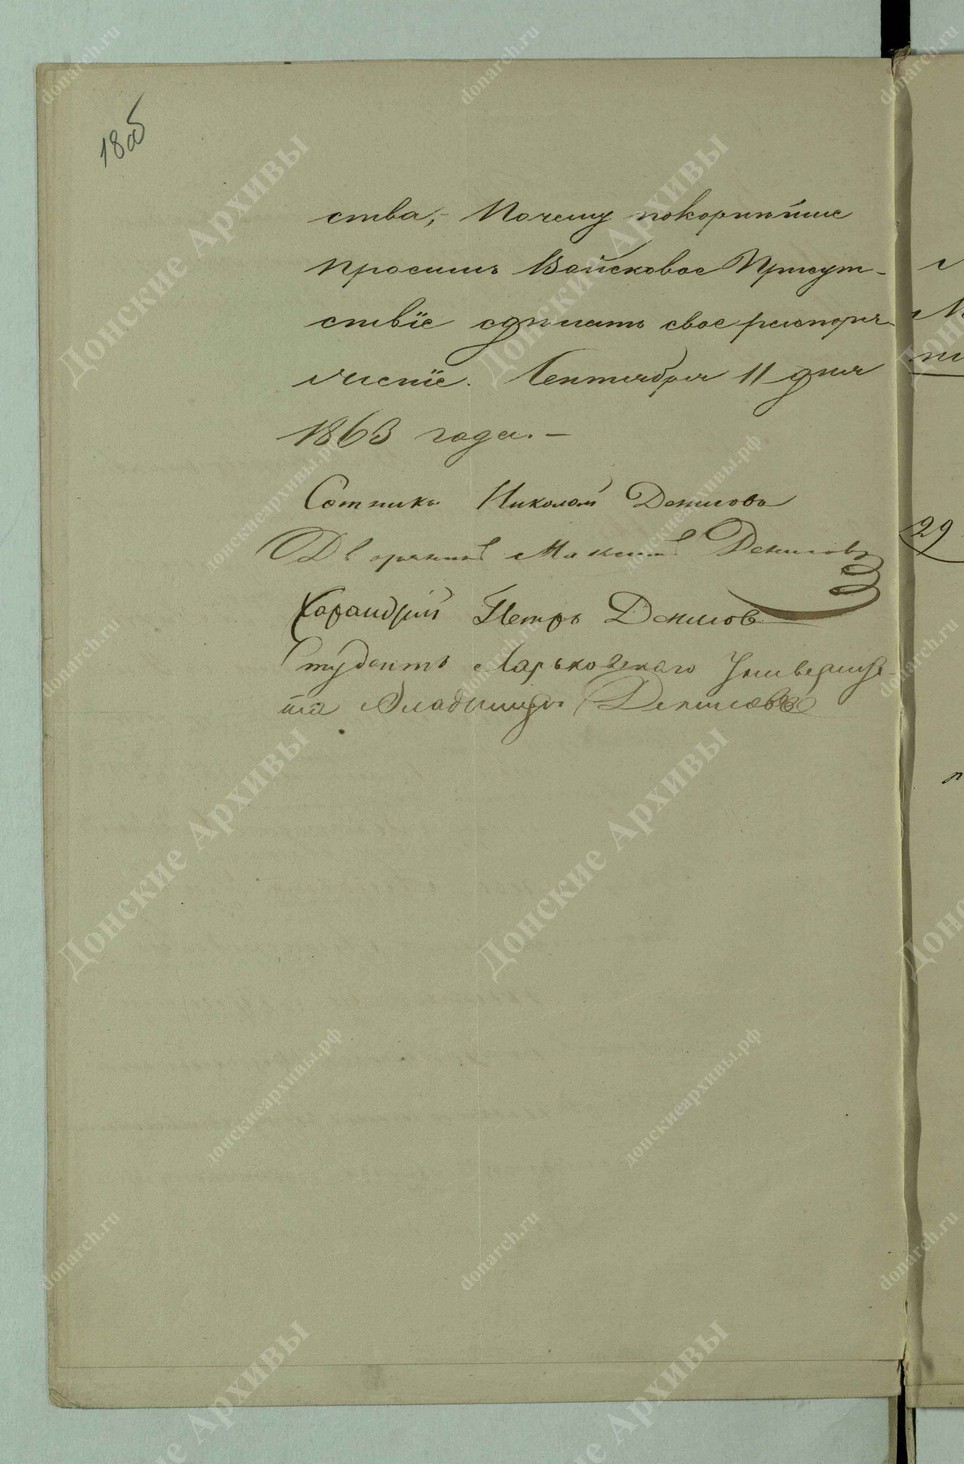 18 об
ства, - Почему покорнѣйше
просимъ Войсковое Присут-
ствіе сдѣлать свое распоря-
женіе. Сентября 11 дня
1863 года. -
Сотникъ Николай Денисовъ
Дворянинъ Максимъ Денисовъ
Хорунжій Петръ Денисовъ
Студентъ Харьковскаго Универси-
тета Владимиръ Денисовъ
29